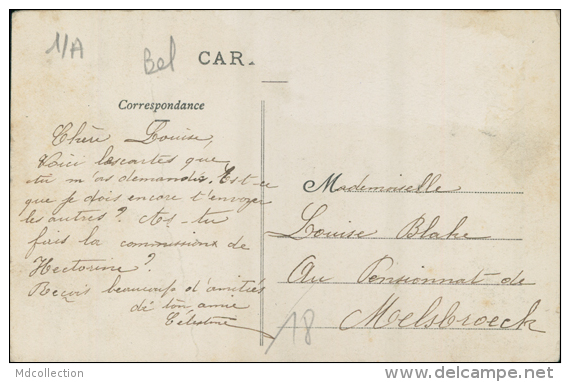 1/A
Bel
CAR
Correspondance
Chère Louise,
Voici les cartes que
tu m'as demandés. Est-ce
que je dois encore t'envoyer
les autres? As-tu
fais la commission de
Hectorine?
Reçois beaucoup d'amitiés
de ton amie
Célestine
M ademoiselle
Louise Blake
Au Pensionnat de
Melsbroeck
18
Mdcollection
http://www.delcampe.net